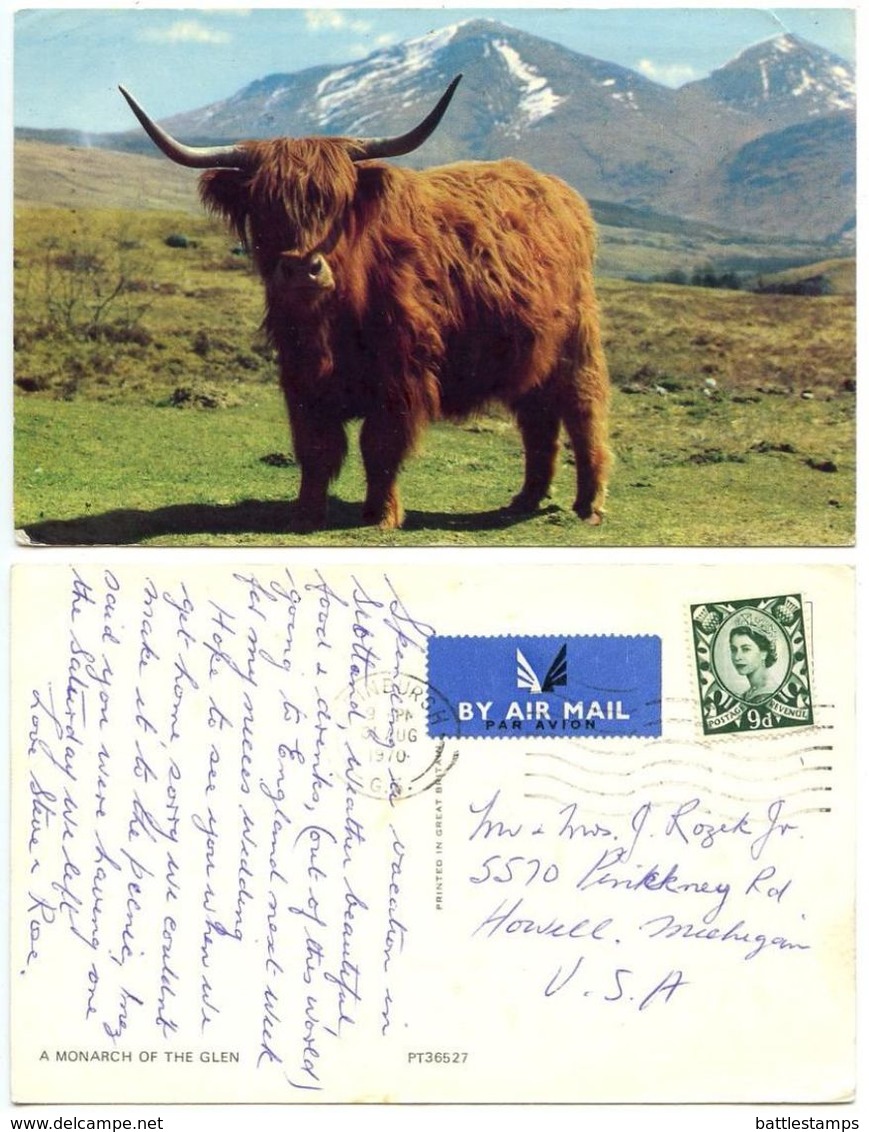 Spending a vacation in
Scotland, weather beautiful,
food & drinks, (out of this world)
going to England next week
for my neices wedding
Hope to see you when we
get home, sorry we couldnt
make it to the picnic, Inez
said you were having one
the Saturday we left
Love Steve & Rose.
BY AIR MAIL
PAR AVION
EDINBURGH
9 PM
AUG
1970
POSTAGE REVENUE
9d
PRINTED IN GREAT BRITAIN
Mr & Mrs. J. Rozek Jr.
5570 Pinkkney Rd
Howell, Michigan
U.S.A
A MONARCH OF THE GLEN
PT36527
www.delcampe.net
battlestamps